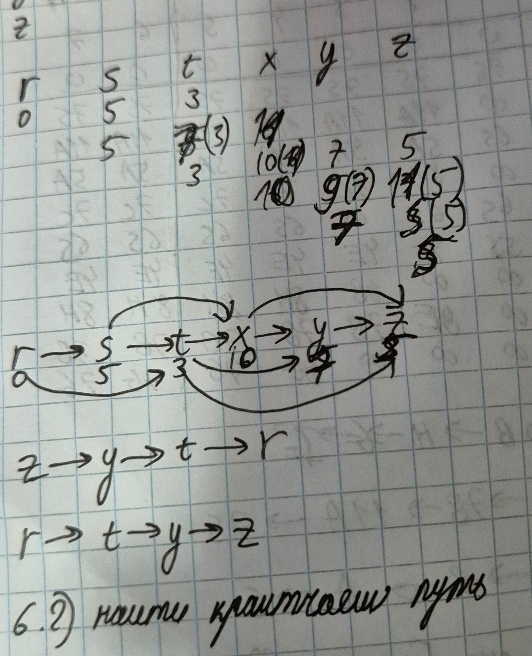 z
r s t x y z
0 5 3
5 (3) 7 5
3 10 9(7) (5)
7 (5)
r → s → t → x → y → z
0 5 3 10 7
z → y → t → r
r → t → y → z
6.2) найти кратчайш путь